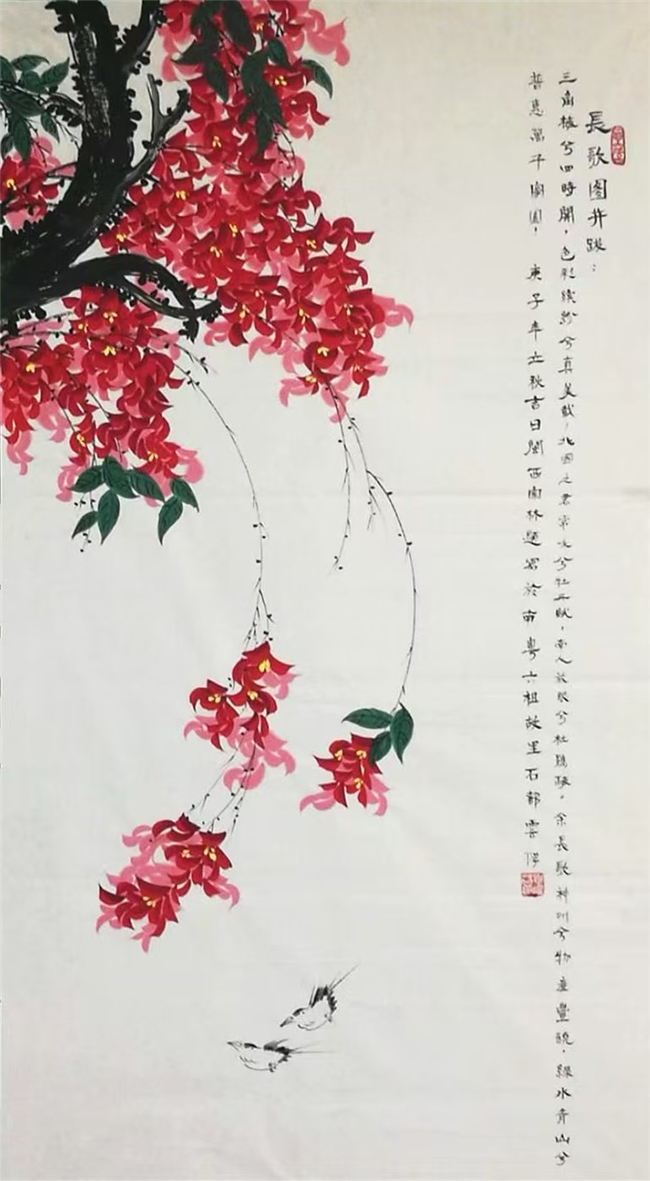 長歌圖并跋：
三角梅兮四時開，色彩繽紛兮真美哉，北國之君常文兮牡丹賦，南人放眼兮杜鵑跡。余長歌神州兮物產豐饒，綠水青山兮
普惠萬千家園，庚子年立秋吉日閩西園林題寫於南粵六祖故里石都雲浮